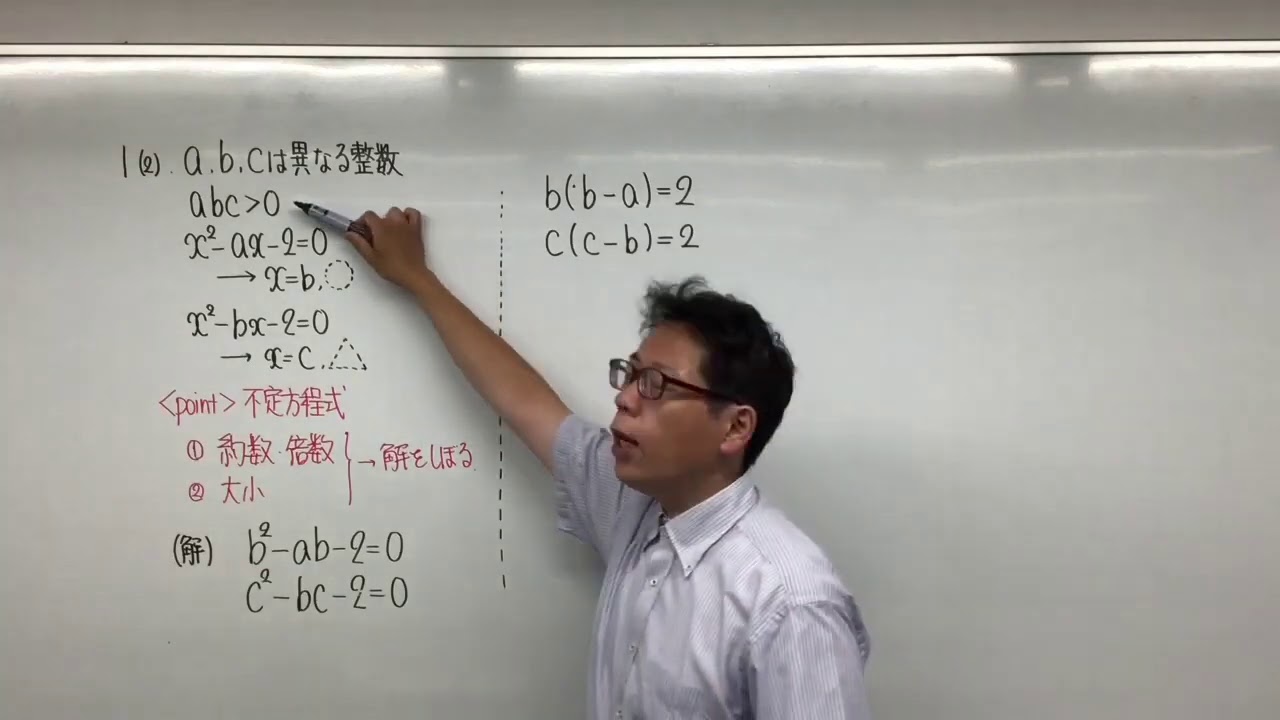 1 (2). a.b.cは異なる整数
abc>0
x²-ax-2=0
→ x=b,
x²-bx-2=0
→ x=c,
<point> 不定方程式
① 約数・倍数
② 大小
→ 解をしぼる
(解) b²-ab-2=0
c²-bc-2=0
b(b-a)=2
c(c-b)=2